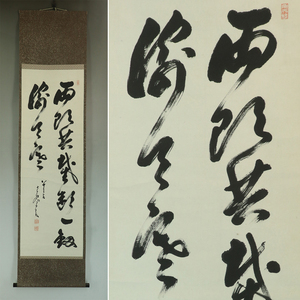 両頭共截断一剣
倚天寒
両頭共截
倚天寒